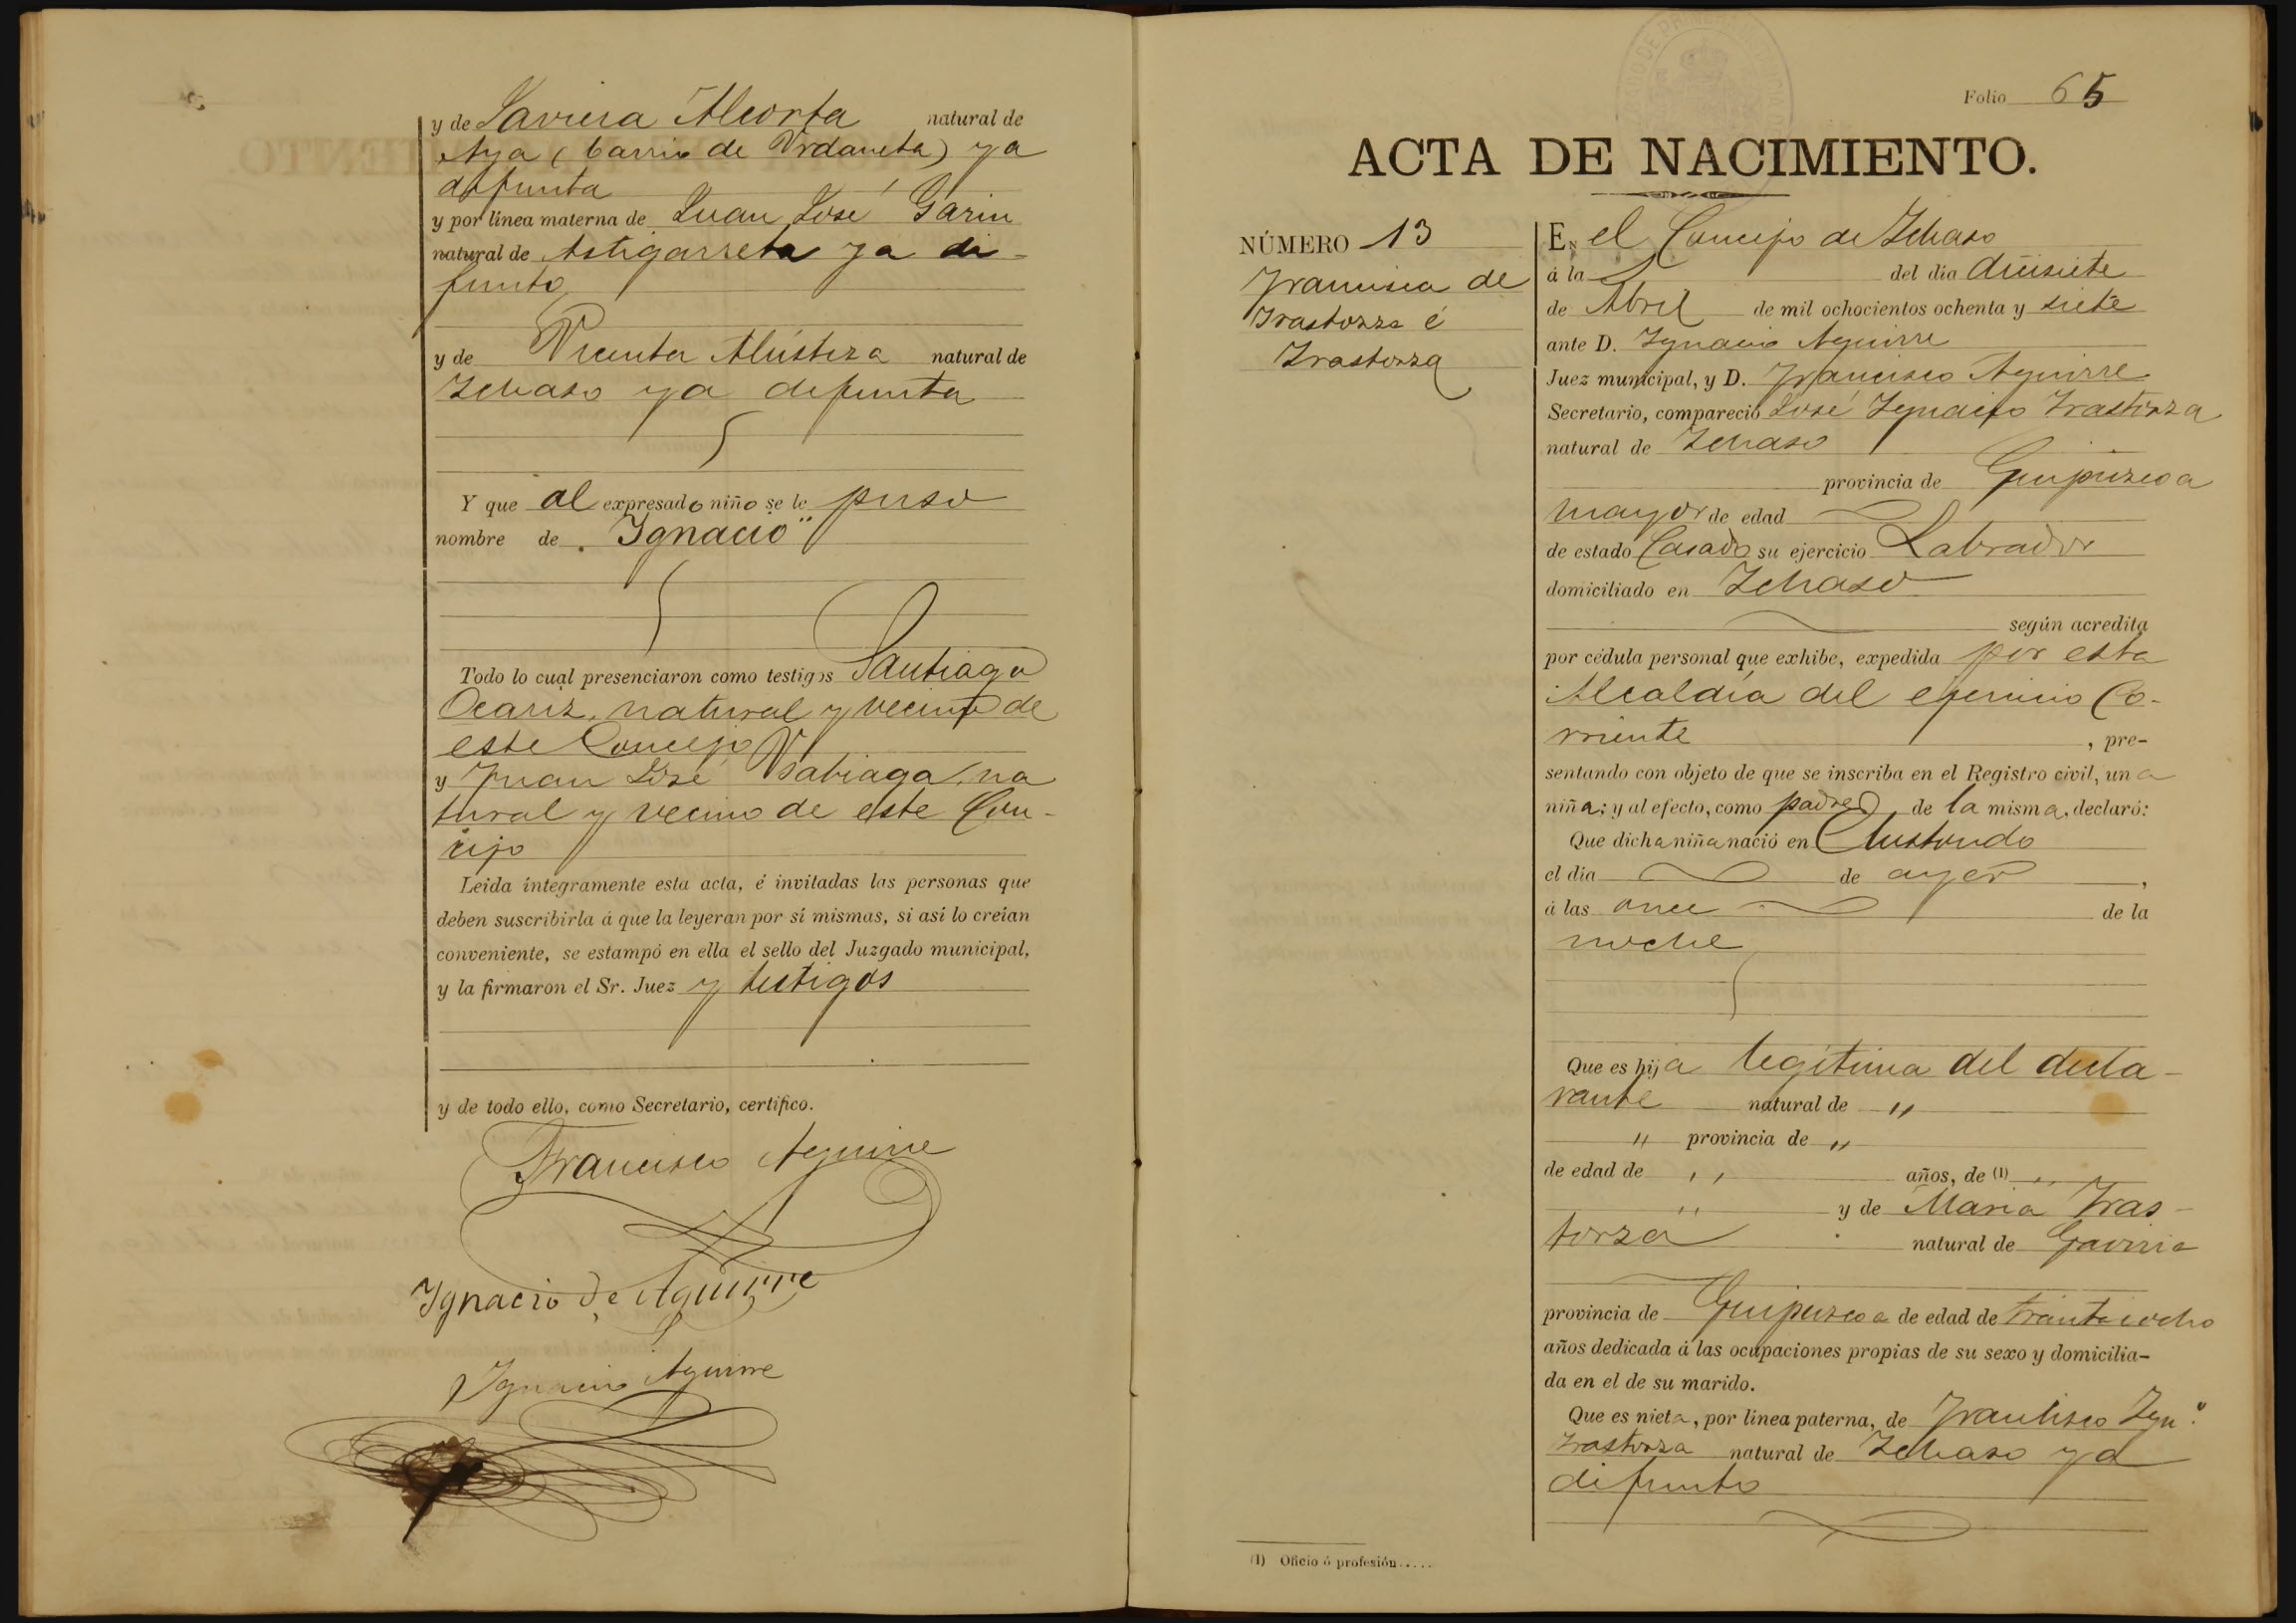 y de Saviera Alcorta natural de
Aya (barrio de Urdaneta) ya
difunta
y por línea materna de Juan José Garin
natural de Astigarreta ya di-
funto
y de Vicenta Alústiza natural de
Ichaso ya difunta
Y que al expresado niño se le puso
nombre de "Ignacio"
Todo lo cual presenciaron como testigos Santiago
Ocariz, natural y vecino de
este Concejo
y Juan José Usabiaga, na
tural y vecino de este Con-
cejo
Leida íntegramente esta acta, é invitadas las personas que
deben suscribirla á que la leyeran por sí mismas, si así lo creían
conveniente, se estampó en ella el sello del Juzgado municipal,
y la firmaron el Sr. Juez y testigos
y de todo ello, como Secretario, certifico.
Francisco Aguirre
Ignacio de Aguirre
Ignacio Aguirre
Folio 65
ACTA DE NACIMIENTO.
NÚMERO 13
Francisca de
Irastorza é
Irastorza
EN el Concejo de Ichaso
á la del dia diecisiete
de Abril de mil ochocientos ochenta y siete
ante D. Ignacio Aguirre
Juez municipal, y D. Francisco Aguirre
Secretario, compareció José Ignacio Irastorza
natural de Ichaso
provincia de Guipúzcoa
mayor de edad
de estado Casado su ejercicio Labrador
domiciliado en Ichaso
según acredita
por cédula personal que exhibe, expedida por esta
Alcaldía del ejercicio Co-
rriente, pre-
sentando con objeto de que se inscriba en el Registro civil, una
niña; y al efecto, como padre de la misma, declaró:
Que dicha niña nació en
el dia de ayer,
á las once de la
noche
Que es hija legítima del decla-
rante natural de "
" provincia de "
de edad de " años, de (1) "
" y de Maria Iras-
torza natural de Gaviria
provincia de Guipuzcoa de edad de treinta iocho
años dedicada á las ocupaciones propias de su sexo y domicilia-
da en el de su marido.
Que es nieta, por línea paterna, de Francisco Ign.º
Irastorza natural de Ichaso ya
difunto
(1) Oficio ó profesión.....